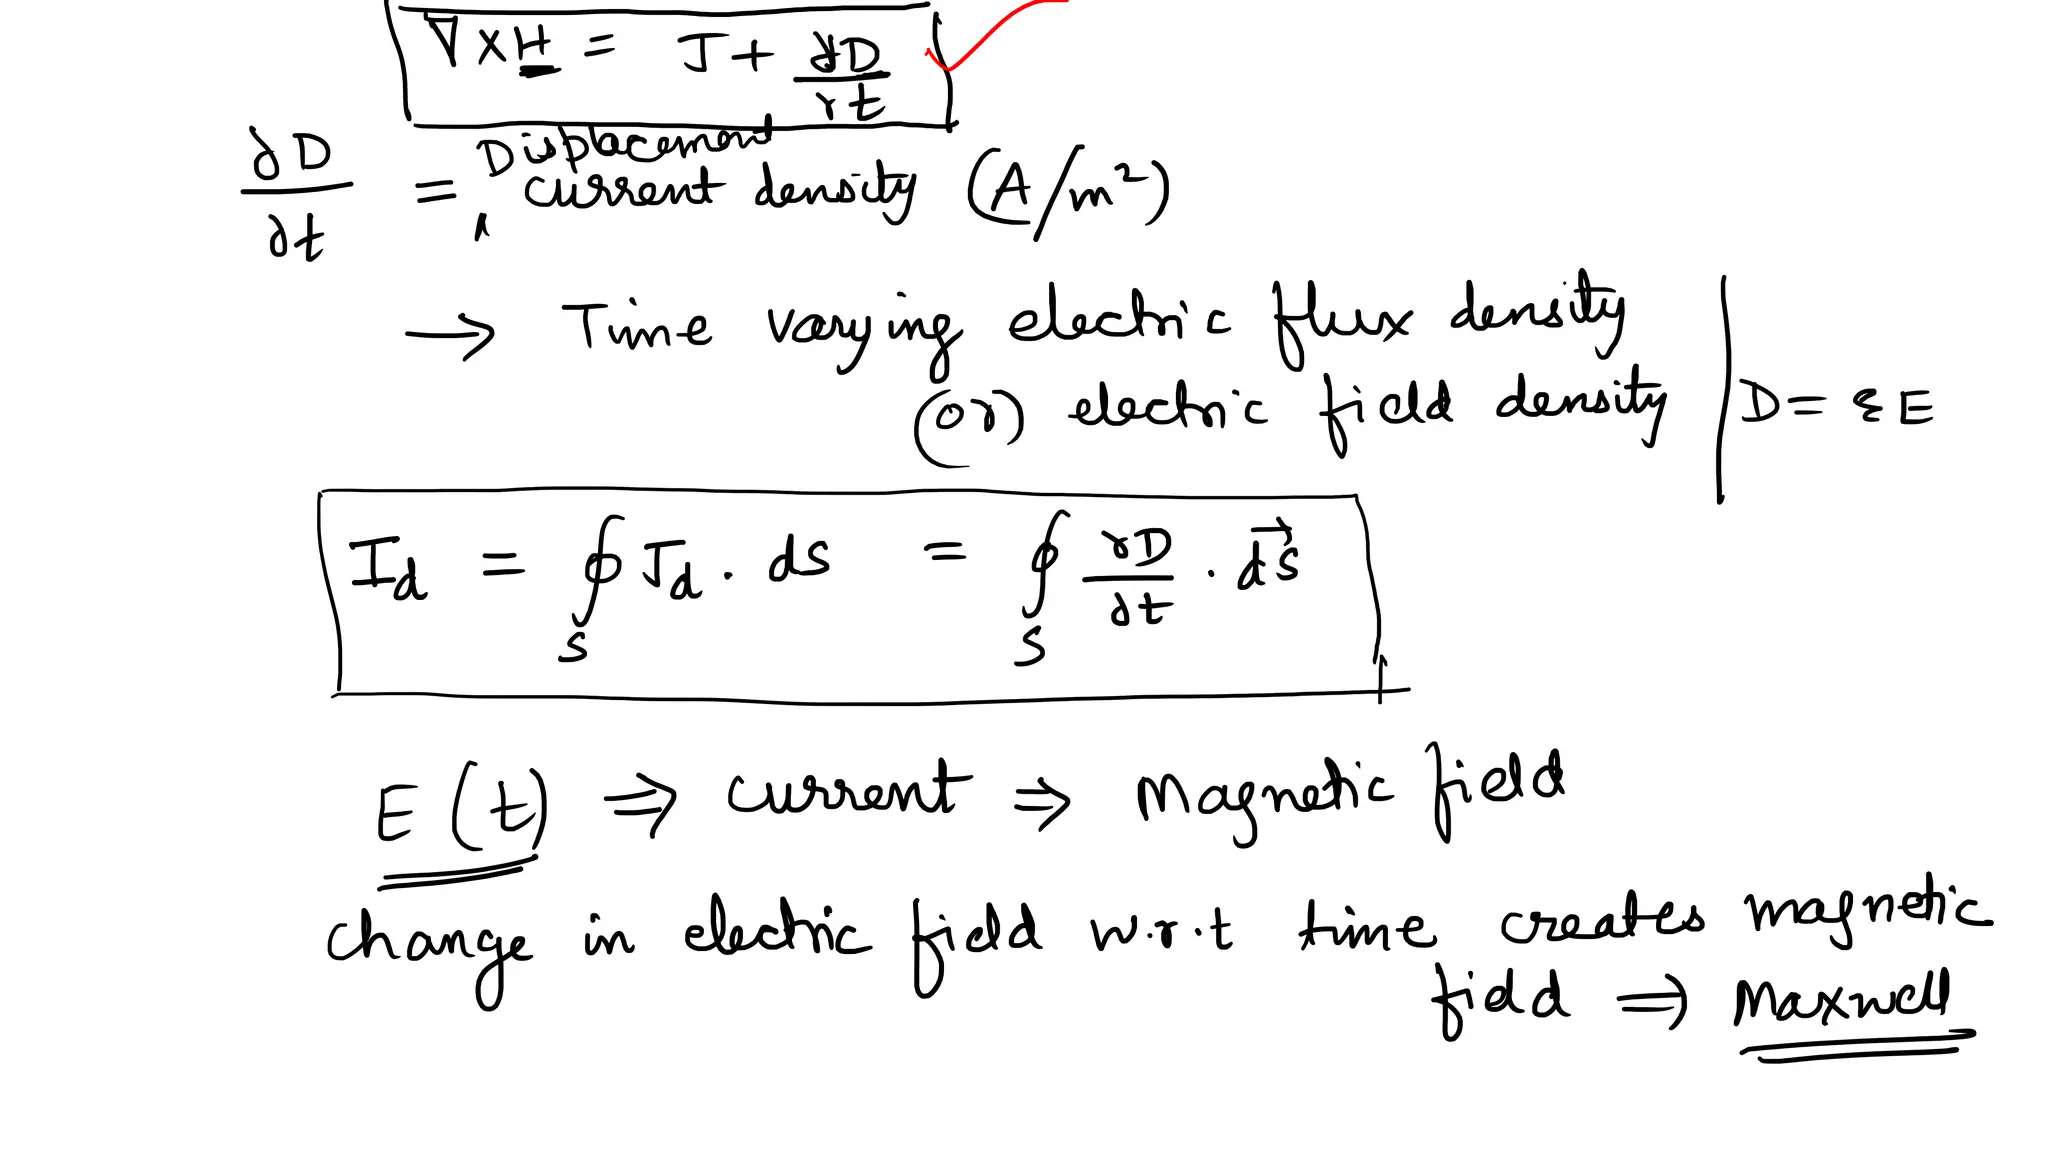 ∇ × H = J + ∂D/∂t
∂D/∂t = Displacement current density (A/m²)
→ Time varying electric flux density
(or) electric field density | D = εE
I_d = ∮_S J_d . ds = ∮_S ∂D/∂t . d\vec{s}
E(t) ⇒ current ⇒ Magnetic field
change in electric field w.r.t time creates magnetic
field ⇒ Maxwell